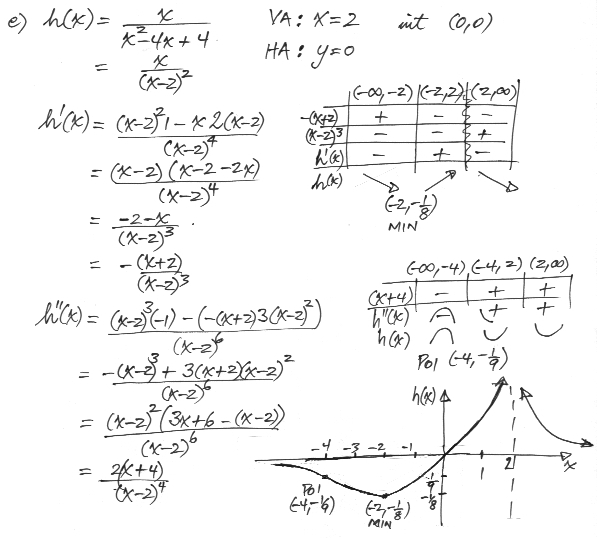 e) h(x) = x / (x²-4x+4) VA: x=2 int (0,0)
= x / (x-2)² HA: y=0
h'(x) = ((x-2)²1 - x2(x-2)) / (x-2)⁴
= (x-2)(x-2-2x) / (x-2)⁴
= (-2-x) / (x-2)³
= -(x+2) / (x-2)³
(-∞,-2) (-2,2) (2,∞)
-(x+2) + - -
(x-2)³ - - +
h'(x) - + -
h(x)
(-2,-1/8)
MIN
h''(x) = ((x-2)³(-1) - (-(x+2)3(x-2)²) / (x-2)⁶
= (-(x-2)³ + 3(x+2)(x-2)²) / (x-2)⁶
= (x-2)²(3x+6-(x-2)) / (x-2)⁶
= 2(x+4) / (x-2)⁴
(-∞,-4) (-4,2) (2,∞)
(x+4) - + +
h''(x) + +
h(x)
POI (-4,-1/9)
h(x)
-4 -3 -2 -1 1 2 x
-1/9
-1/8
POI
(-4,-1/9)
(-2,-1/8)
MIN